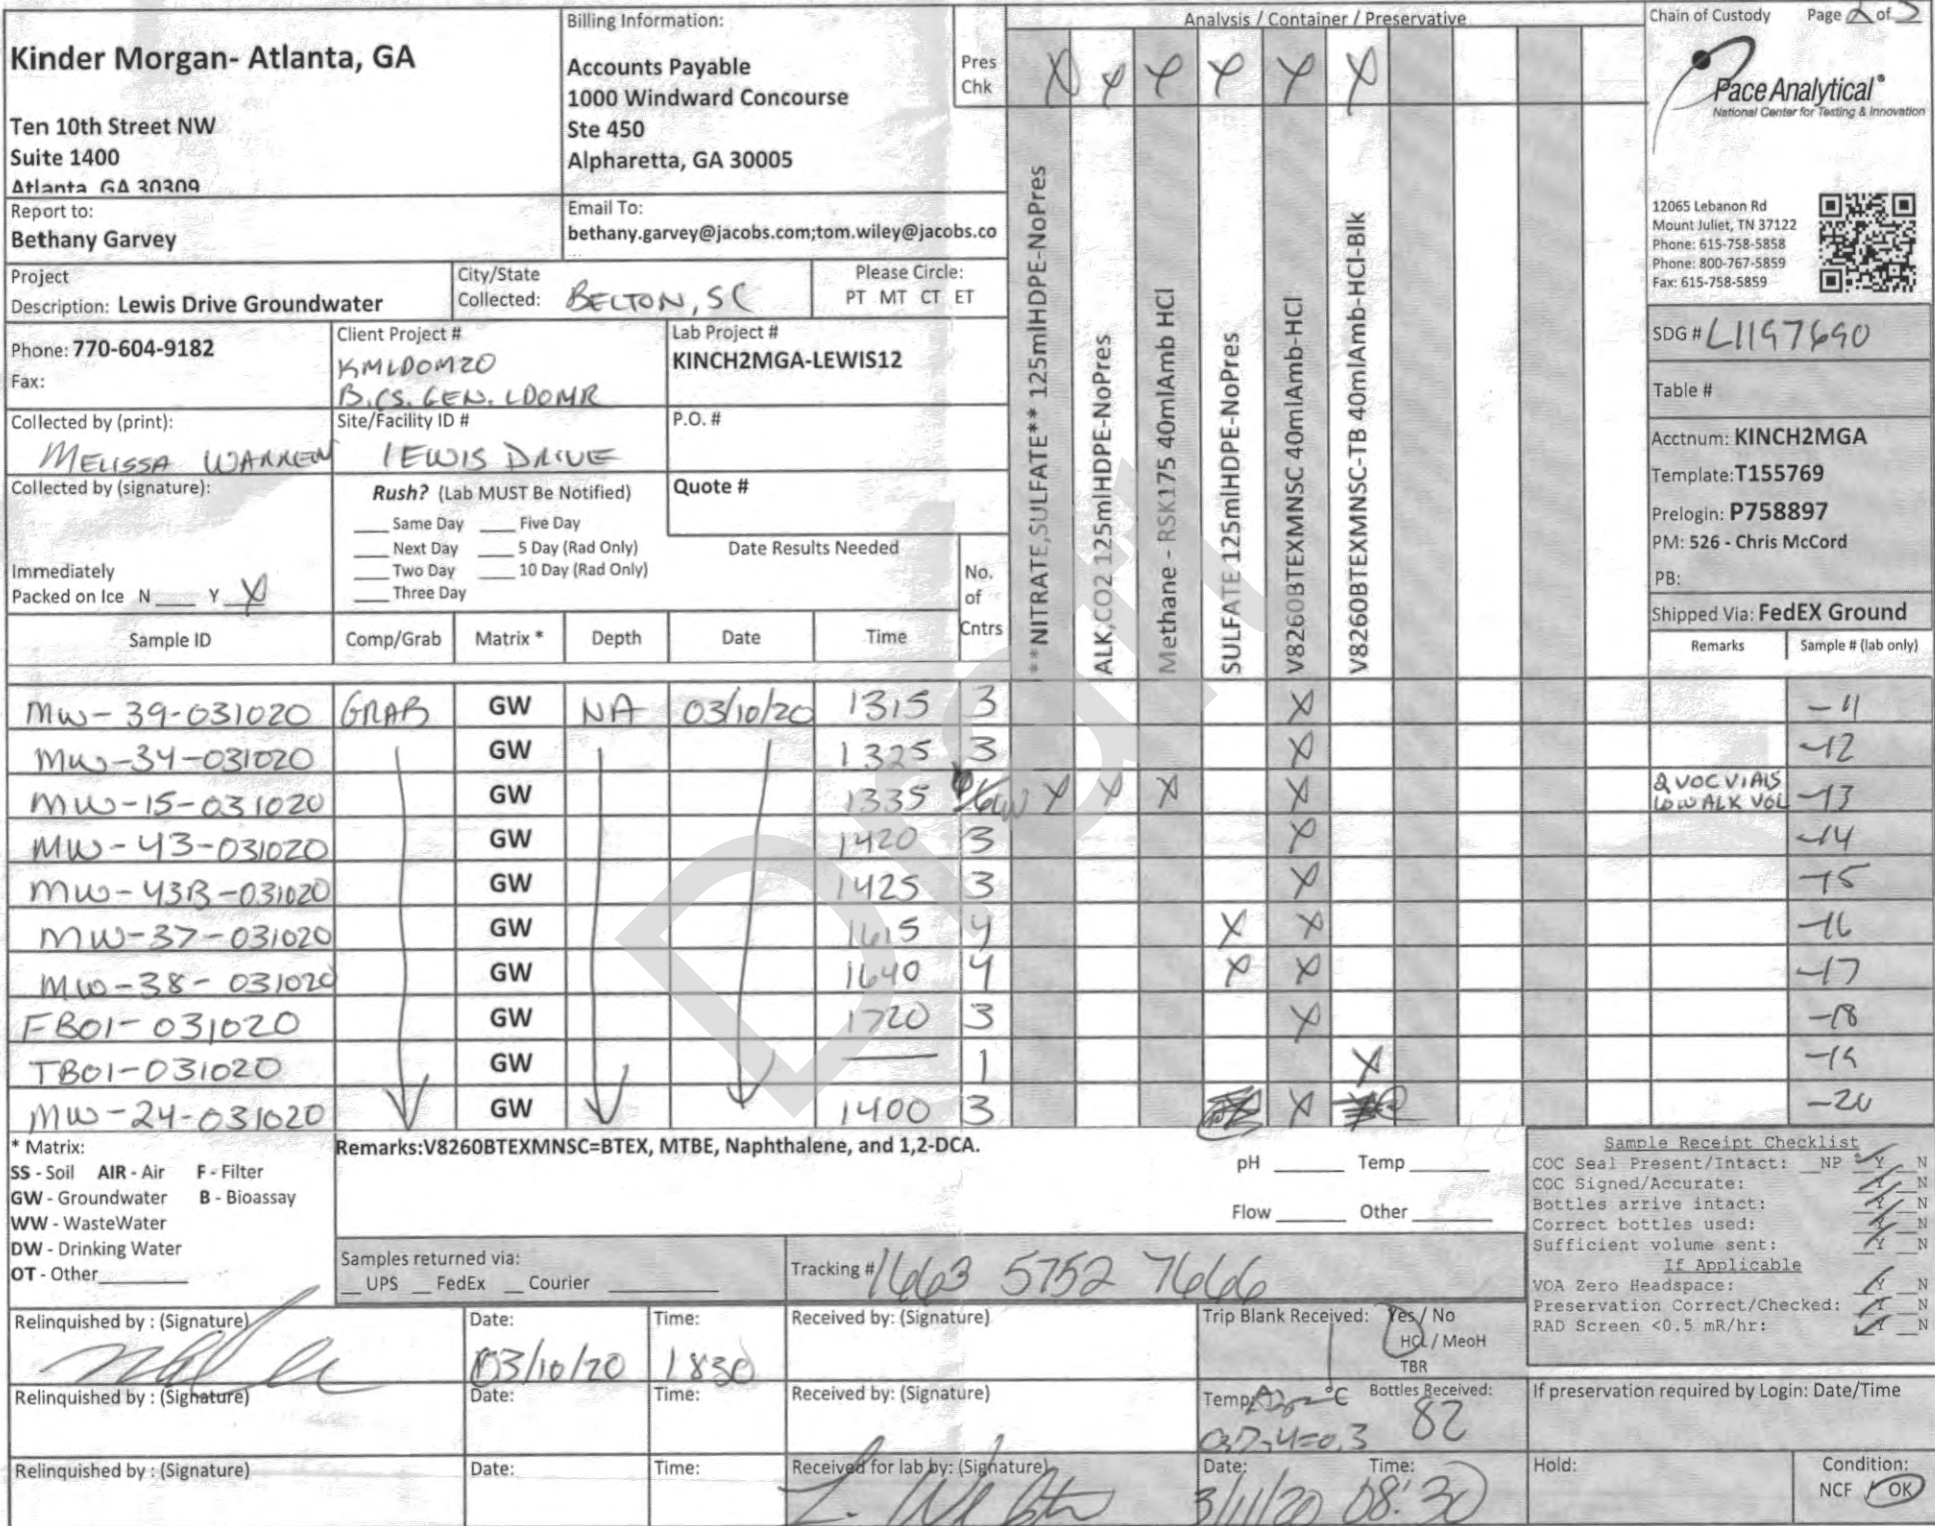 Kinder Morgan- Atlanta, GA
Ten 10th Street NW
Suite 1400
Atlanta GA 30309
Billing Information:
Accounts Payable
1000 Windward Concourse
Ste 450
Alpharetta, GA 30005
Pres
Chk
X X X X X X
Analysis / Container / Preservative
Chain of Custody Page 2 of 3
Pace Analytical®
National Center for Testing & Innovation
12065 Lebanon Rd
Mount Juliet, TN 37122
Phone: 615-758-5858
Phone: 800-767-5859
Fax: 615-758-5859
Report to:
Bethany Garvey
Email To:
bethany.garvey@jacobs.com;tom.wiley@jacobs.co
Project
Description: Lewis Drive Groundwater
City/State
Collected: BELTON, SC
Please Circle:
PT MT CT ET
Phone: 770-604-9182
Fax:
Client Project #
KMLDOM20
B.CS.GEN.LDOMR
Lab Project #
KINCH2MGA-LEWIS12
Collected by (print):
MELISSA WARREN
Site/Facility ID #
LEWIS DRIVE
P.O. #
Collected by (signature):
Rush? (Lab MUST Be Notified)
___ Same Day ___ Five Day
___ Next Day ___ 5 Day (Rad Only)
___ Two Day ___ 10 Day (Rad Only)
___ Three Day
Quote #
Date Results Needed
Immediately
Packed on Ice N ___ Y X
No.
of
Cntrs
Sample ID Comp/Grab Matrix * Depth Date Time
**NITRATE,SULFATE** 125mlHDPE-NoPres
ALK,CO2 125mlHDPE-NoPres
Methane - RSK175 40mlAmb HCl
SULFATE 125mlHDPE-NoPres
V8260BTEXMNSC 40mlAmb-HCl
V8260BTEXMNSC-TB 40mlAmb-HCl-Blk
SDG # L1197690
Table #
Acctnum: KINCH2MGA
Template: T155769
Prelogin: P758897
PM: 526 - Chris McCord
PB:
Shipped Via: FedEX Ground
Remarks Sample # (lab only)
MW-39-031020 GRAB GW NA 03/10/20 1315 3 X -11
MW-34-031020 GW 1325 3 X -12
MW-15-031020 GW 1335 X X X X 2 VOC VIALS LOW ALK VOL -13
MW-43-031020 GW 1420 3 X -14
MW-43B-031020 GW 1425 3 X -15
MW-37-031020 GW 1615 4 X X -16
MW-38-031020 GW 1640 4 X X -17
FB01-031020 GW 1720 3 X -18
TB01-031020 GW — 1 X -19
MW-24-031020 GW 1400 3 X -20
* Matrix:
SS - Soil AIR - Air F - Filter
GW - Groundwater B - Bioassay
WW - WasteWater
DW - Drinking Water
OT - Other
Remarks:V8260BTEXMNSC=BTEX, MTBE, Naphthalene, and 1,2-DCA.
pH ___ Temp ___
Flow ___ Other ___
Samples returned via:
__ UPS __ FedEx __ Courier
Tracking # 1663 5752 7666
Sample Receipt Checklist
COC Seal Present/Intact: __NP Y __N
COC Signed/Accurate: Y __N
Bottles arrive intact: Y __N
Correct bottles used: Y __N
Sufficient volume sent: Y __N
If Applicable
VOA Zero Headspace: Y __N
Preservation Correct/Checked: Y __N
RAD Screen <0.5 mR/hr: Y __N
Relinquished by : (Signature)
Date: 03/10/20
Time: 1830
Received by: (Signature)
Trip Blank Received: Yes / No
HCL / MeoH
TBR
Relinquished by : (Signature)
Date:
Time:
Received by: (Signature)
Temp °C
Bottles Received:
82
If preservation required by Login: Date/Time
Relinquished by : (Signature)
Date:
Time:
Received for lab by: (Signature)
Date: 3/11/20
Time: 08:30
Hold:
Condition:
NCF / OK
Draft